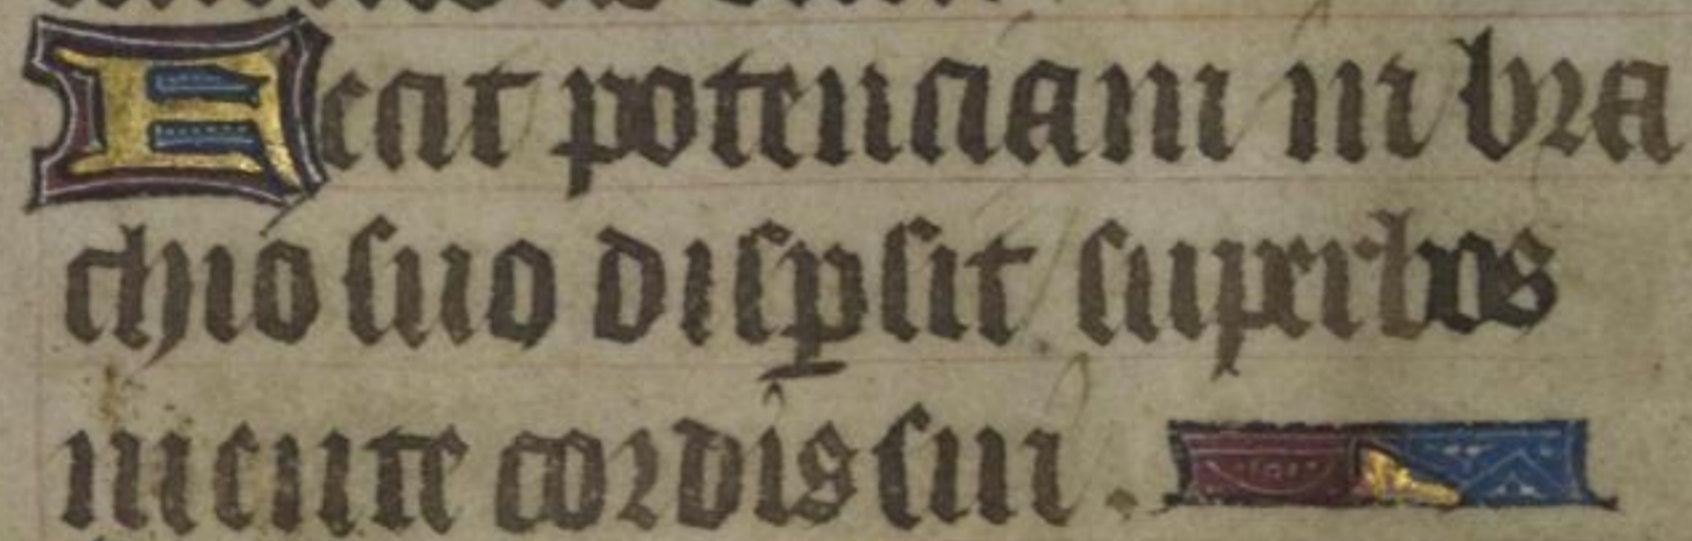 Fecit potenciam in bra
chio suo disꝑsit superbos
mente cordis sui .